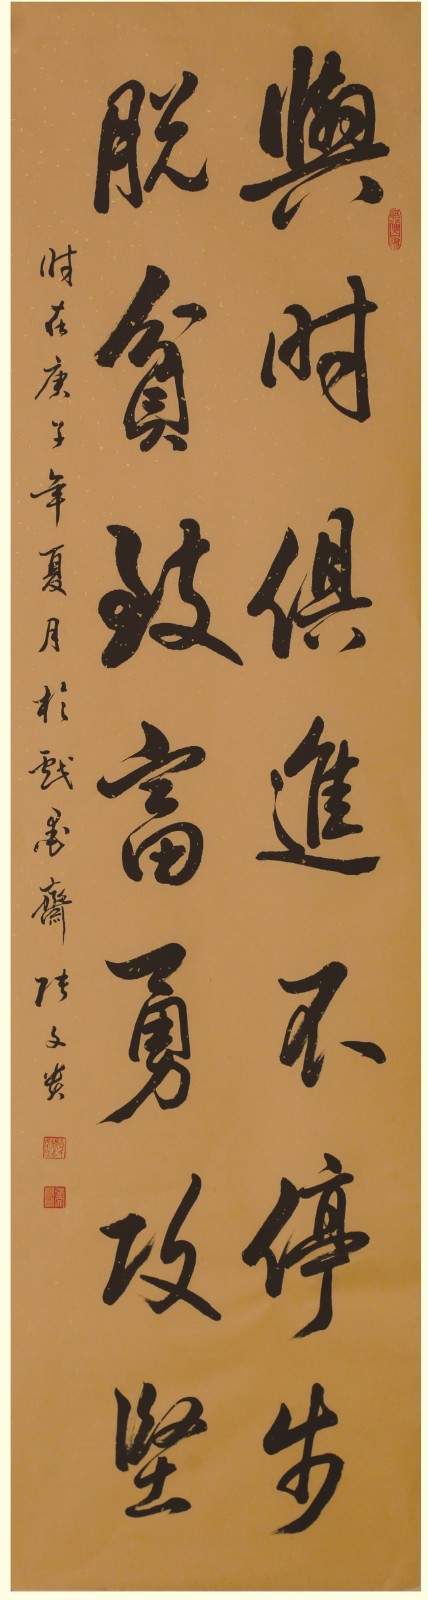 與時俱進不停步
脱貧致富勇攻堅
時在庚子年夏月於戲墨齋 文炎